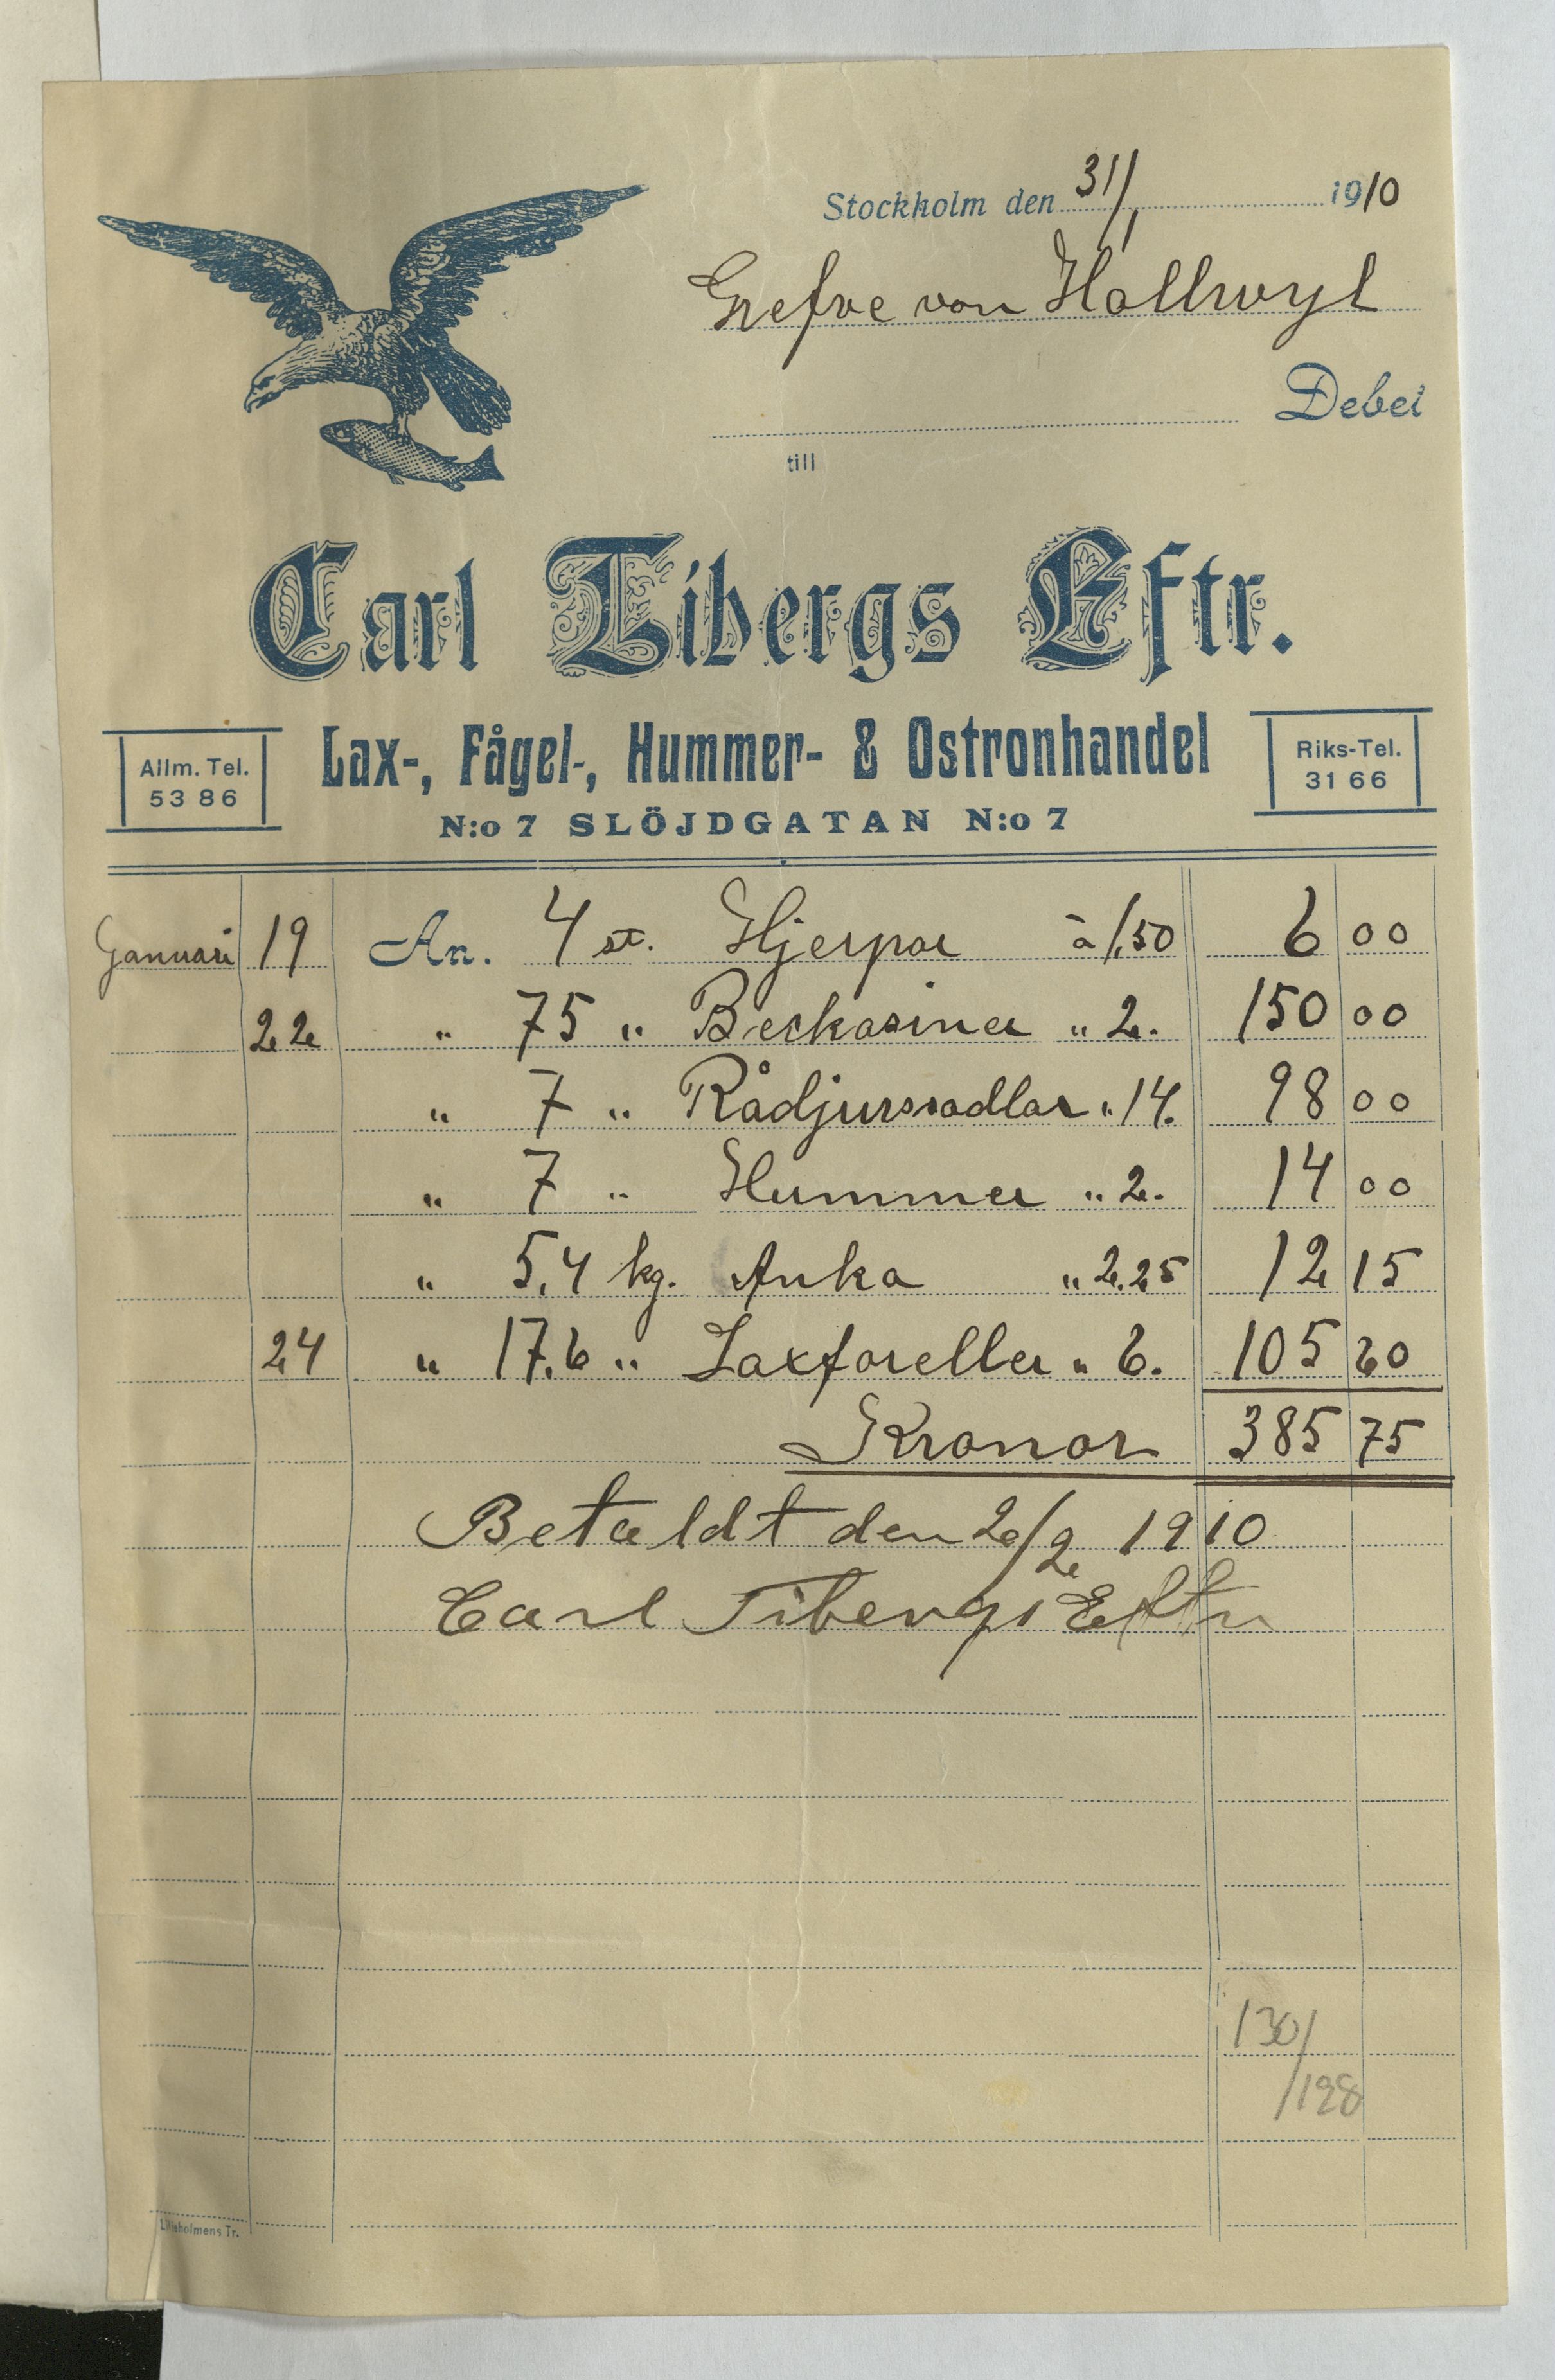 Stockholm den 31/1 1910
Grefve von Hallwyl
Debet
till
Carl Tibergs Eftr.
Lax-, Fågel-, Hummer- & Ostronhandel
Allm. Tel.
53 86
Riks-Tel.
31 66
N:o 7 SLÖJDGATAN N:o 7
Januari 19 An. 4 st. Hjerpar à 1,50 6 00
22 " 75 " Beckasiner " 2. 150 00
" 7 " Rådjurssadlar " 14. 98 00
" 7 " Hummer " 2. 14 00
" 5,4 kg. Anka " 2.25 12 15
24 " 17.6 " Laxforeller " 6. 105 60
Kronor 385 75
Betaldt den 2/2 1910
Carl Tibergs Eftr
130/
/128
Liljeholmens Tr.